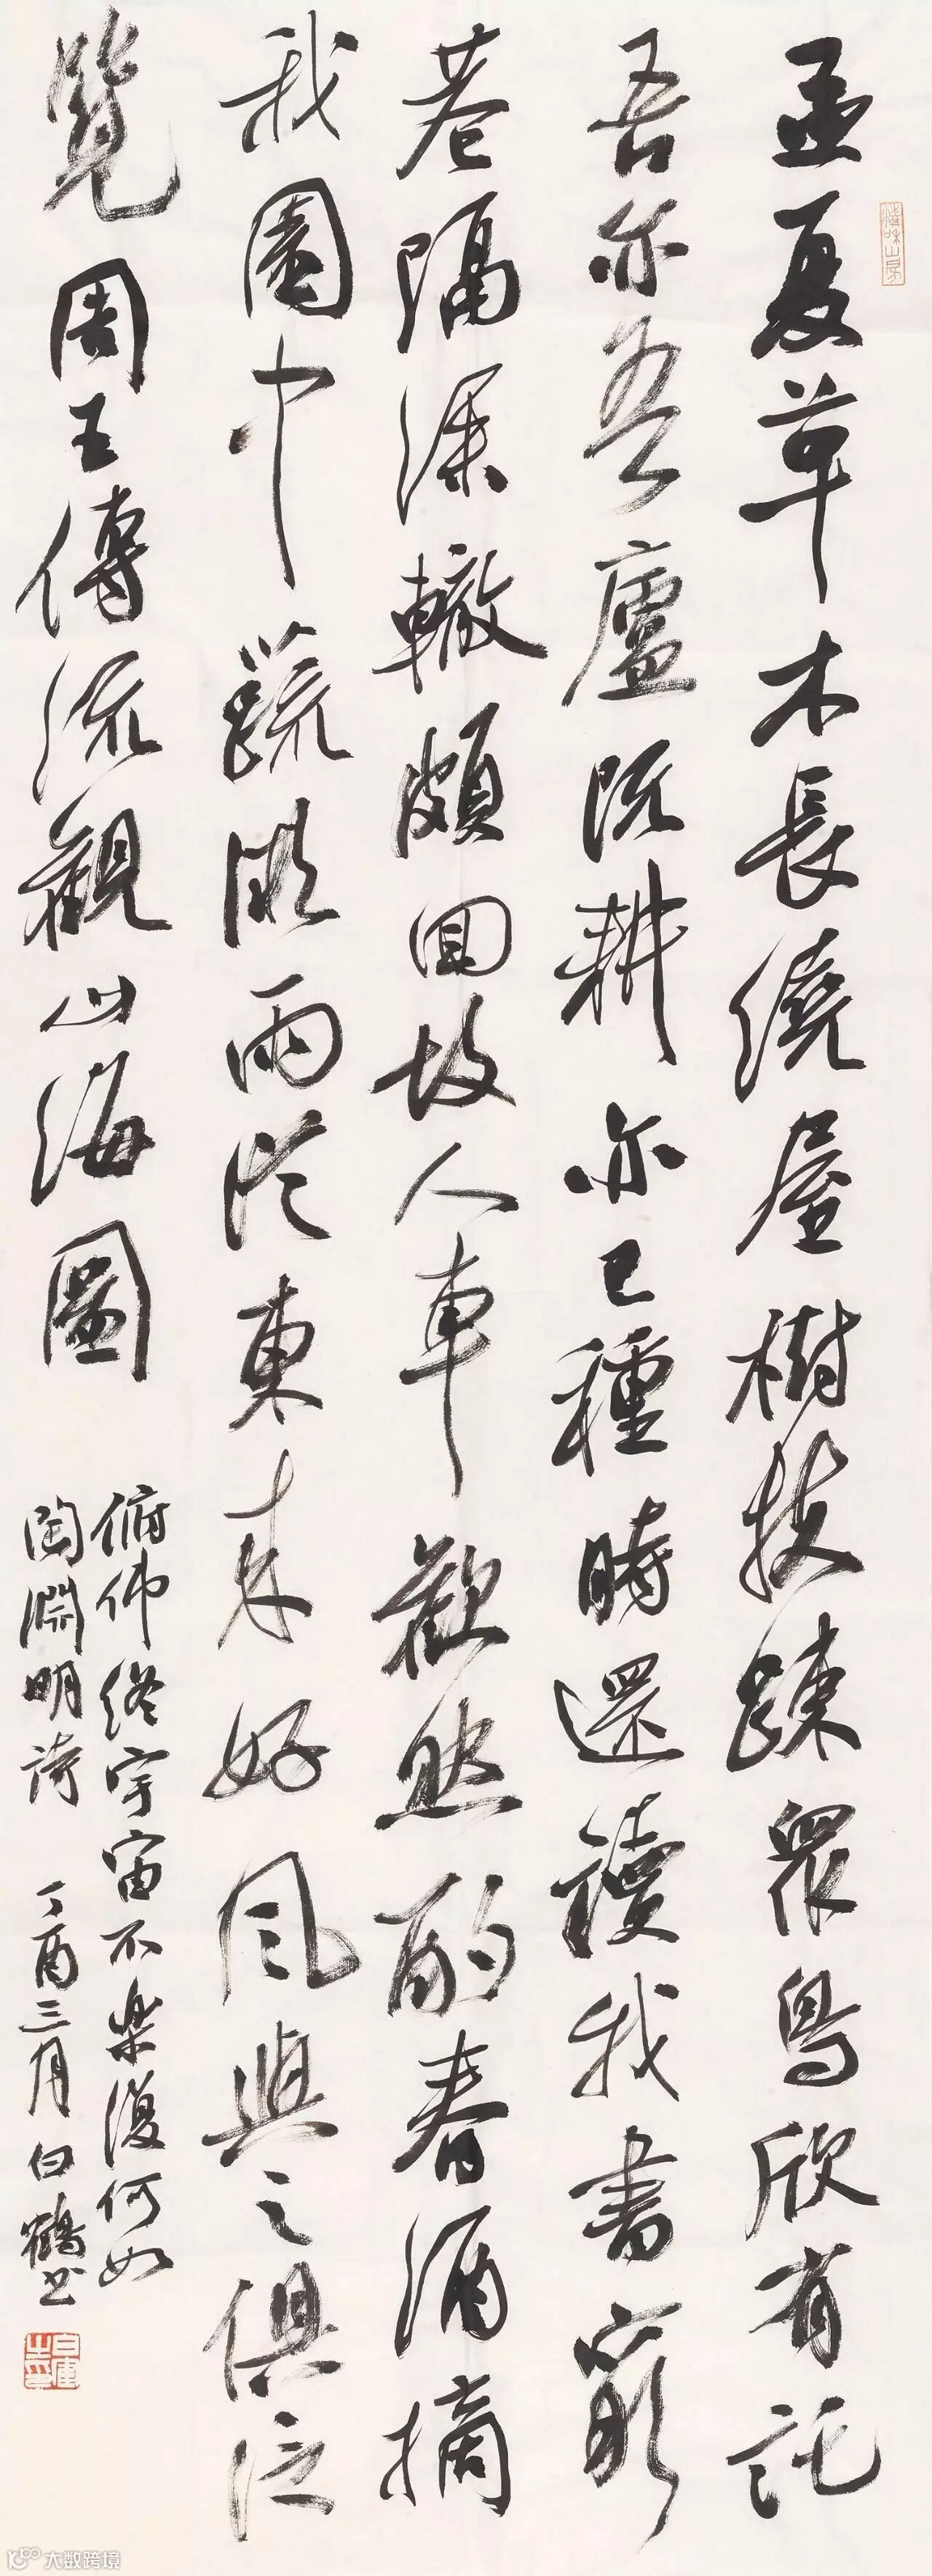 孟夏草木長繞屋樹扶疎衆鳥欣有託
吾亦愛廬既耕亦已種時還讀我書窮
巷隔深轍頗回故人車歡然酌春酒摘
我園中蔬微雨從東来好風與之俱泛
覽周王傳流觀山海圖
俯仰終宇宙不樂復何如
陶淵明詩 丁酉三月白鶴書
大数跨境